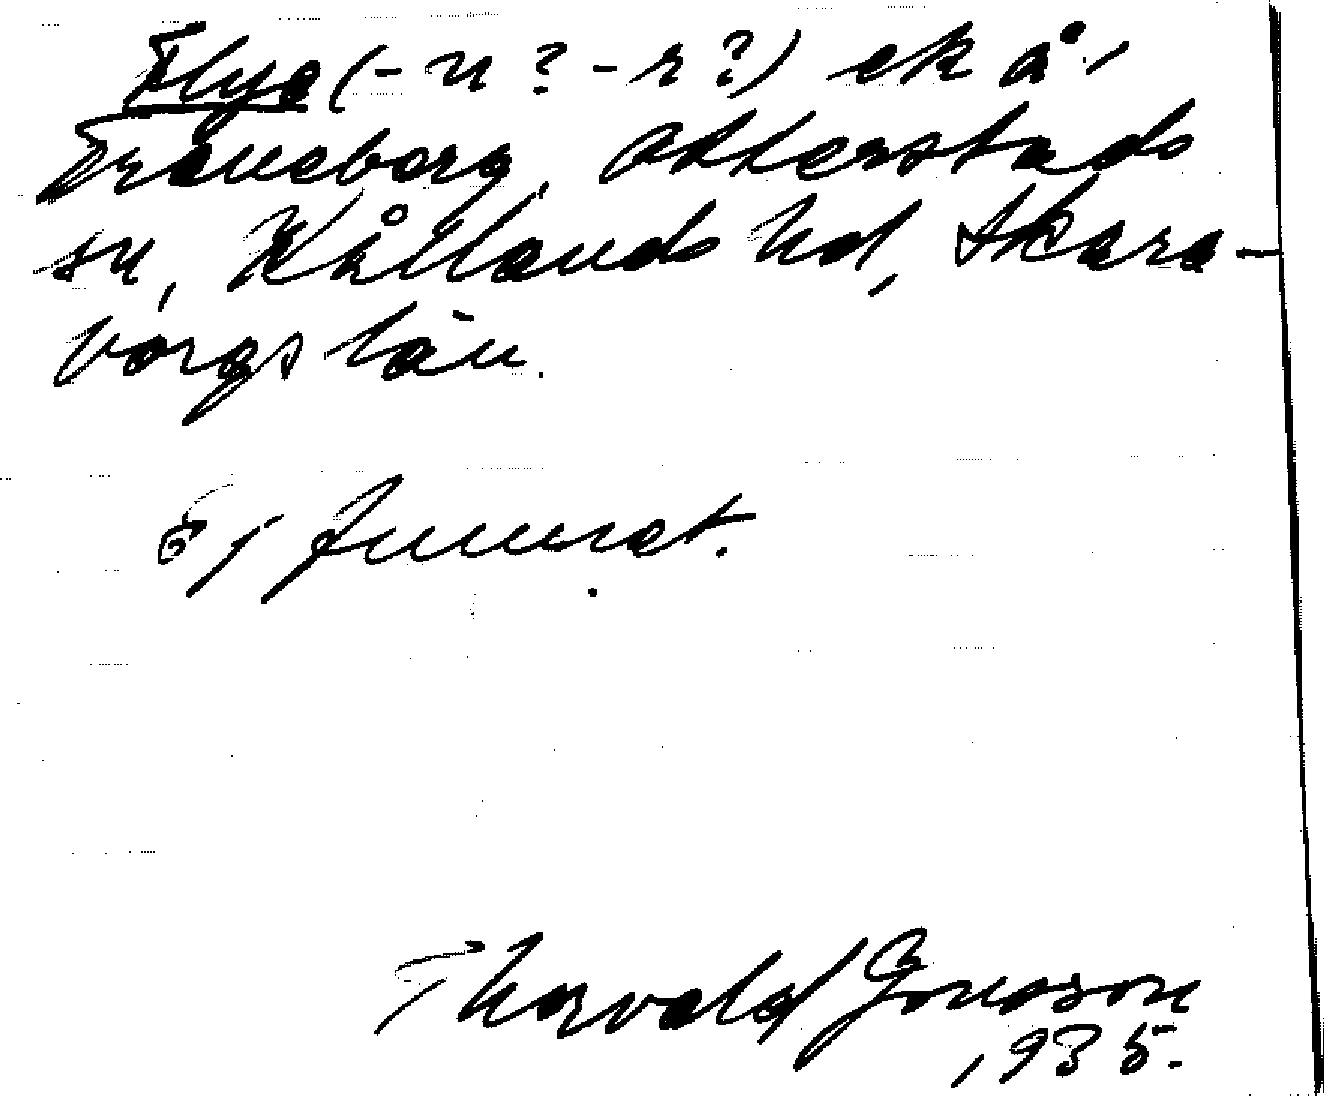 Flya (-n? -r?) ek å i
Traneborg, Otterstads
sn, Kållands hd, Skara-
borgs län.
Ej funnet.
Thorvald Jonsson
1935.